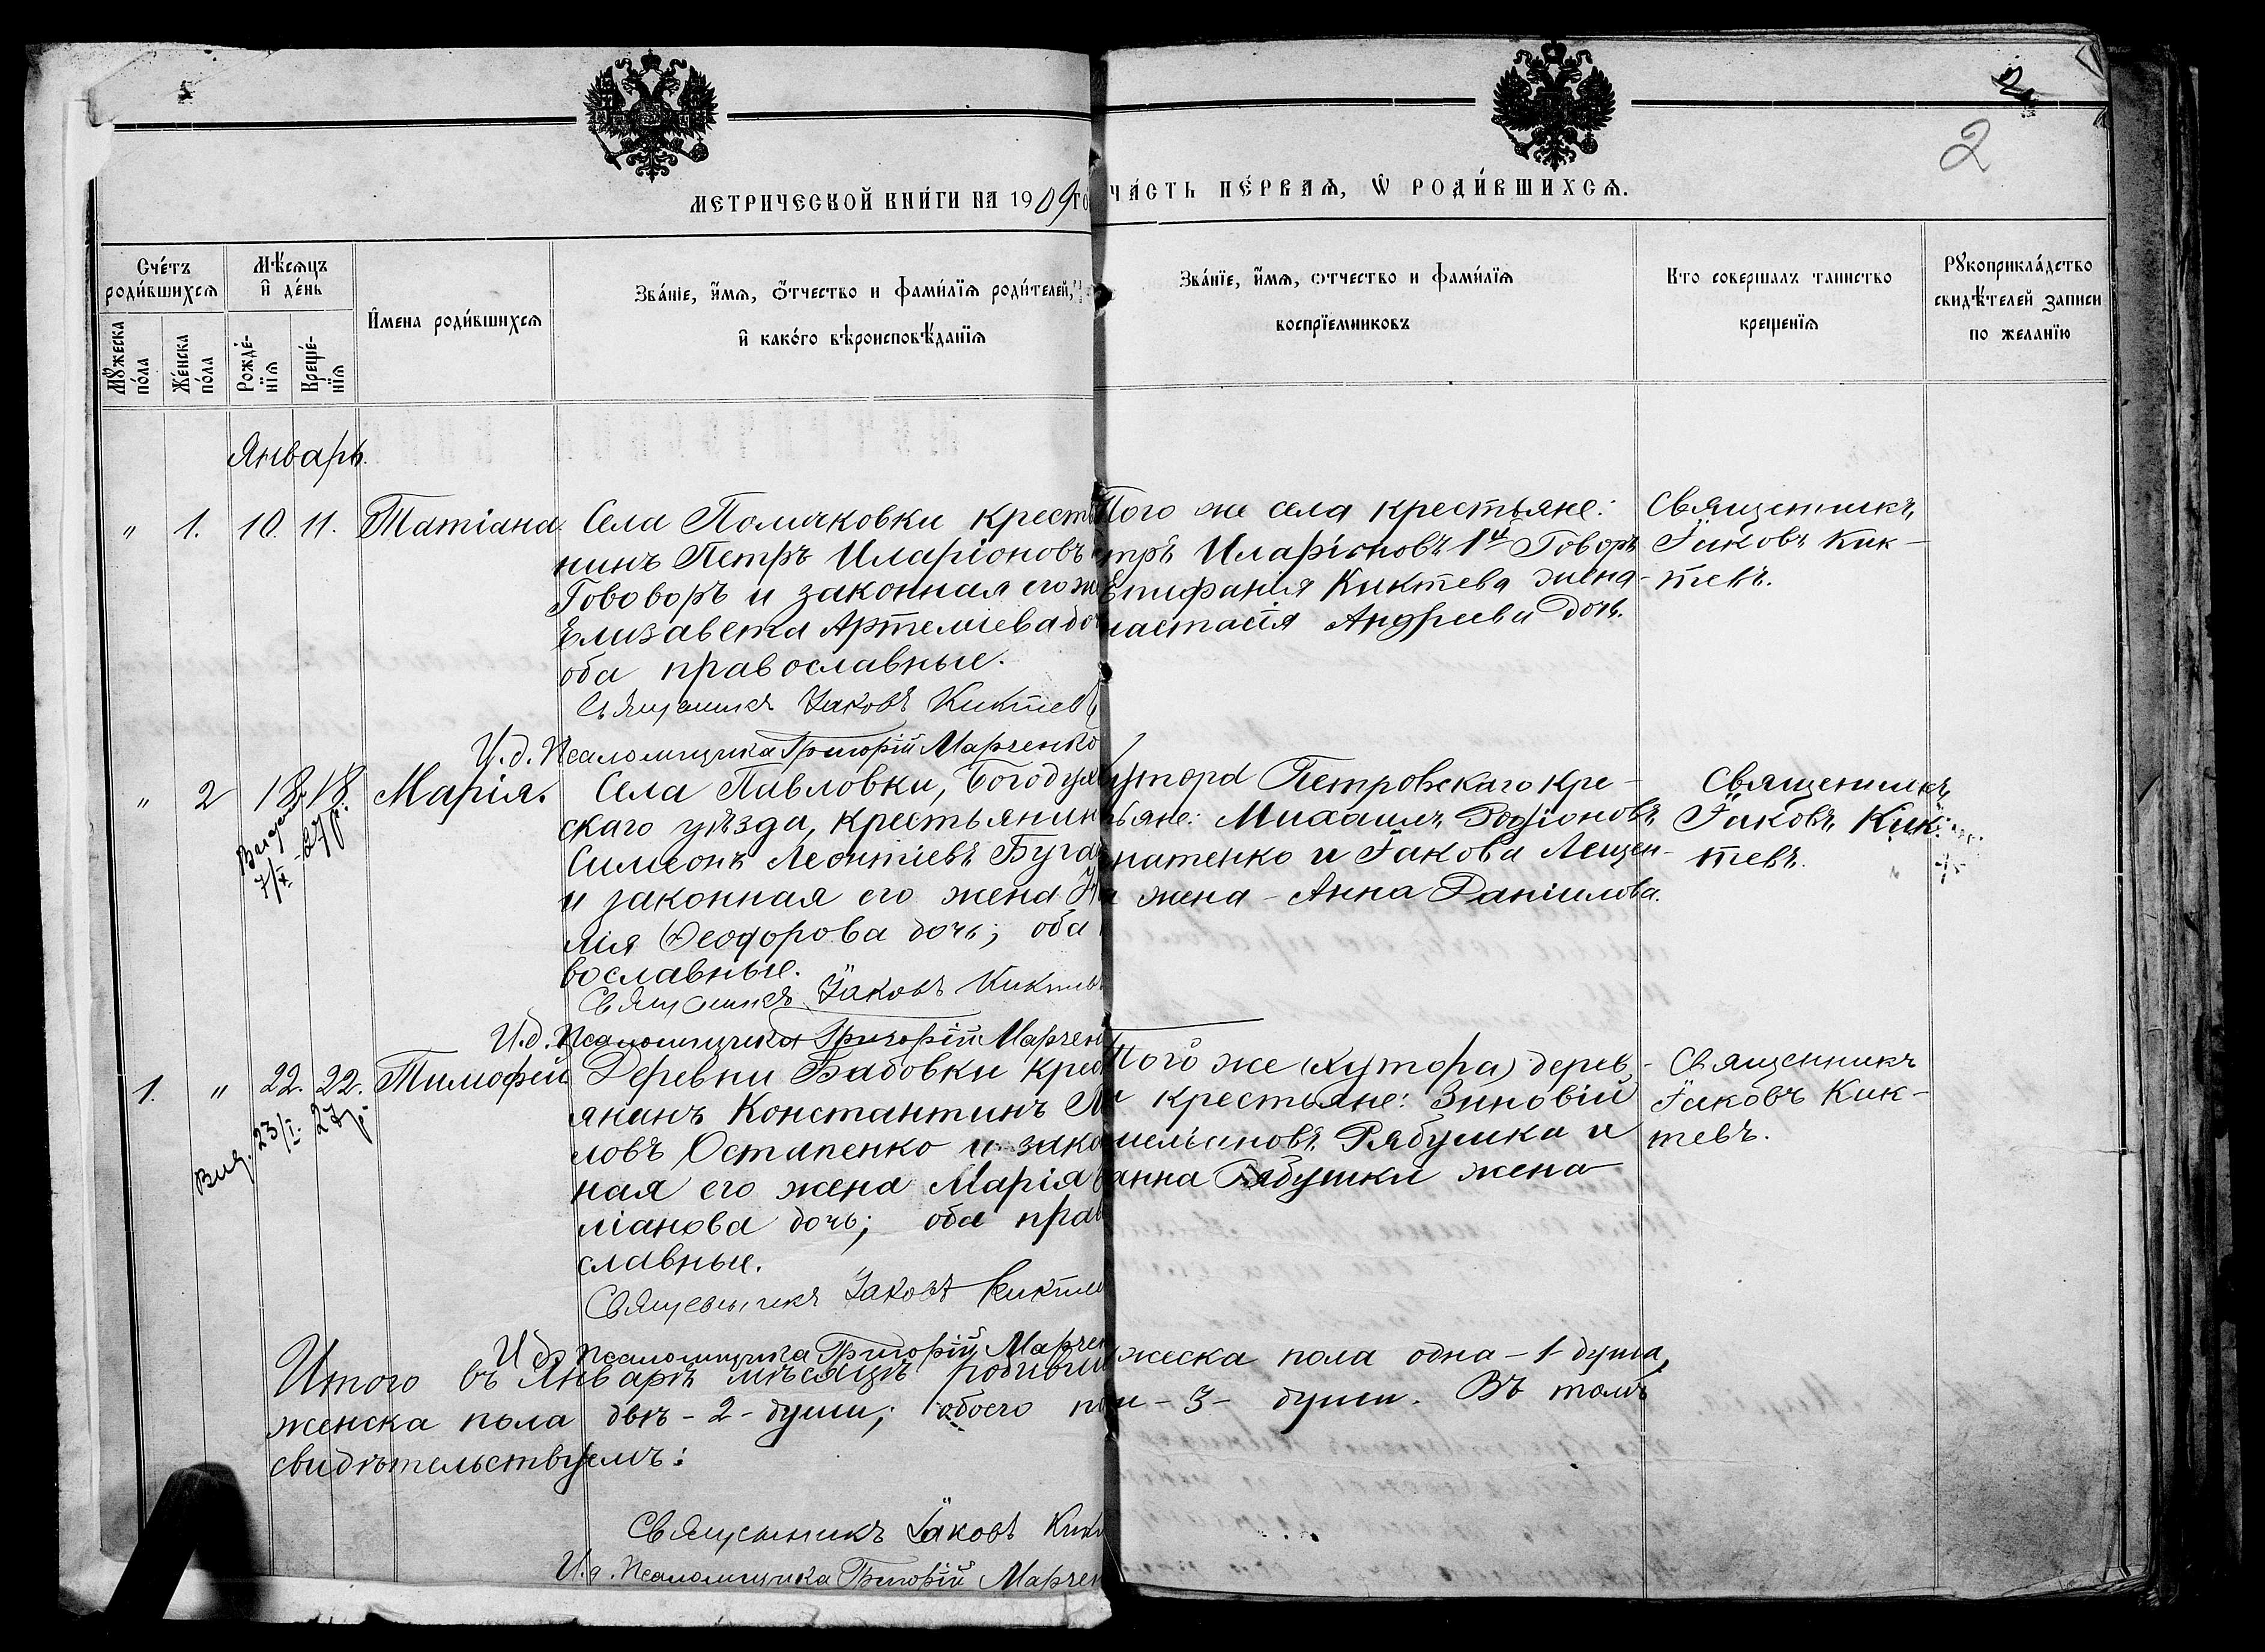 2
МЕТРИЧЕСКОЙ КНИ́ГИ НА 1909 ГО
ЧА́СТЬ ПЕ́РВАѦ, Ѡ҆ РОДИ́ВШИХСѦ.
Сче́тъ роди́вшихсѧ
Мѣ́сѧцъ и҆ де́нь
И҆мена роди́вшихсѧ
Зва́нїе, и҆́мѧ, ѻ҆́тчество и фами́лїѧ роди́телей,
и҆ како́го вѣроисповѣ́данїѧ
Зва́нїе, и҆́мѧ, ѻтчество и фами́лїѧ
воспрїемниковъ
Кто совершалъ таинство
крещенїѧ
Рꙋкоприкла́дство
свидѣ́телей записи
по желанїю
Мꙋ́жеска по́ла
Же́нска по́ла
Рожде́нїѧ
Креще́нїѧ
Январь.
" 1. 10. 11. Татіана. Села Помаковки крест
нинъ Петръ Иларіоновъ
Гововоръ и законная его ж
Елизавета Артеміева до
оба православные.
Священникъ Іаковъ Киктев
И.д. Псаломщика Григорій Марченко
Того же села крестьяне:
тръ Иларіоновъ 1й Говоръ
Епифанія Киктева жена
настасія Андреева дочь.
Священникъ
Іаковъ Кик-
тевъ.
" 2 18. 18. Марія. Села Павловки, Богодух
скаго уѣзда, крестьянин
Симеонъ Леонтіевъ Буга
и законная его жена
лія Ѳеодорова дочь; оба
вославные.
Священникъ Іаковъ Киктев
И.д. Псаломщика Григорій Марчен
7/X
27 р.
хутора Петровскаго кре-
ьяне: Михаилъ Родіоновъ
натенко и Іакова Лещен-
жена - Анна Даніилова.
Священникъ
Іаковъ Кик-
тевъ.
1. " 22. 22. Тимофей Деревни Бабовки Крес
янанъ Константинъ
ловъ Остапенко и зако
ная его жена Марія
міанова дочь; оба прав
славные.
Священникъ Іаковъ Киктев
И.д. Псаломщика Григорій Марчен
Выд. 23/I. 27 р.
Того же (хутора) дерев-
и крестьяне: Зиновій
мельяновъ Рябушка и
анна Рябушки жена
Священникъ
Іаковъ Кик-
тевъ.
Итого въ Январѣ мѣсяцѣ родивши
жеска пола одна - 1 - душа,
женска пола двѣ - 2 - души; обоего по
- 3 - души. Въ томъ
свидѣтельствуемъ:
Священникъ Іаковъ Кик
И.д. Псаломщика Григорій Марчен